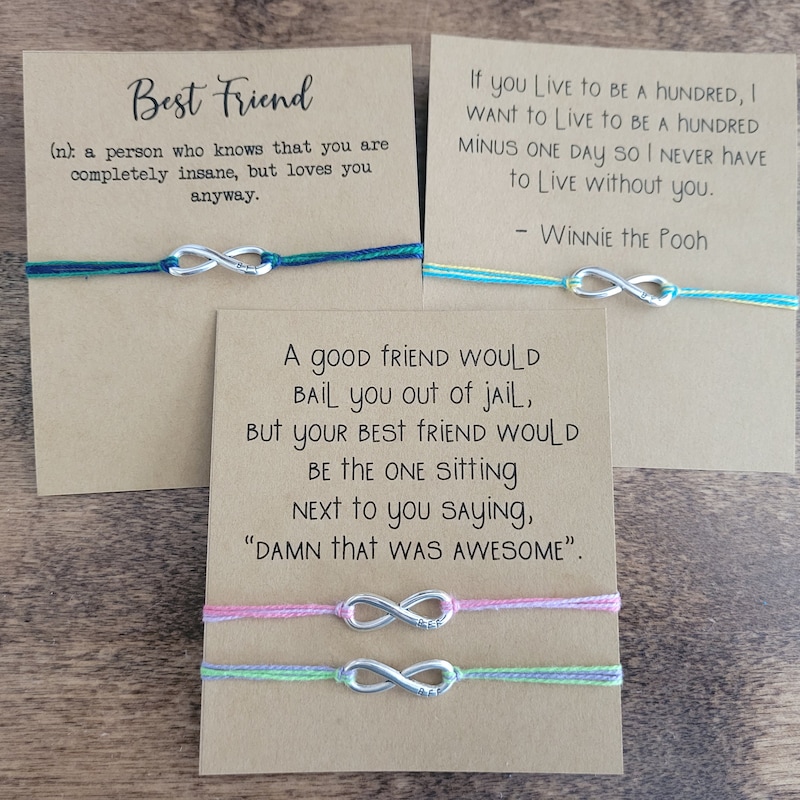 Best Friend
(n): a person who knows that you are
completely insane, but loves you
anyway.
BFF
If you Live to be a hundred, I
want to Live to be a hundred
minus one day so I never have
to Live without you.
- Winnie the Pooh
BFF
A good friend would
bail you out of jail,
but your best friend would
be the one sitting
next to you saying,
“Damn that was awesome”.
BFF
BFF